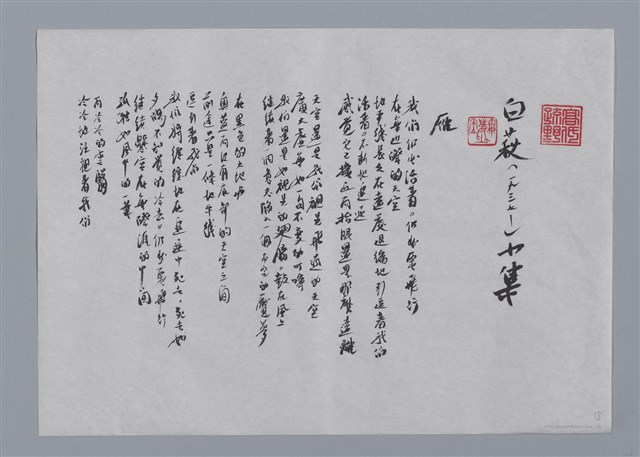 白萩(一九三七—)小集
雁
我們仍然活著。仍然要飛行
在無邊際的天空
地平線長久在遠處退縮地引逗著我們
活著。不斷地追逐
感覺它已接近而抬眼還是那麼遠離
天空還是我們祖先飛過的天空
廣大虛無如一句不變的叮嚀
我們還是如祖先的翅膀。鼓在風上
繼續著一個意志陷入一個不完的魘夢
在黑色的大地與
奧藍而沒有底部的天空之間
前途只是一條地平線
逗引著我們
我們將緩緩地在追逐中死去,死去如
夕陽不知覺的冷去。仍然要飛行
繼續懸空在無際涯的中間
孤獨如風中的一葉
而冷冷的雲翳
冷冷地注視著我們